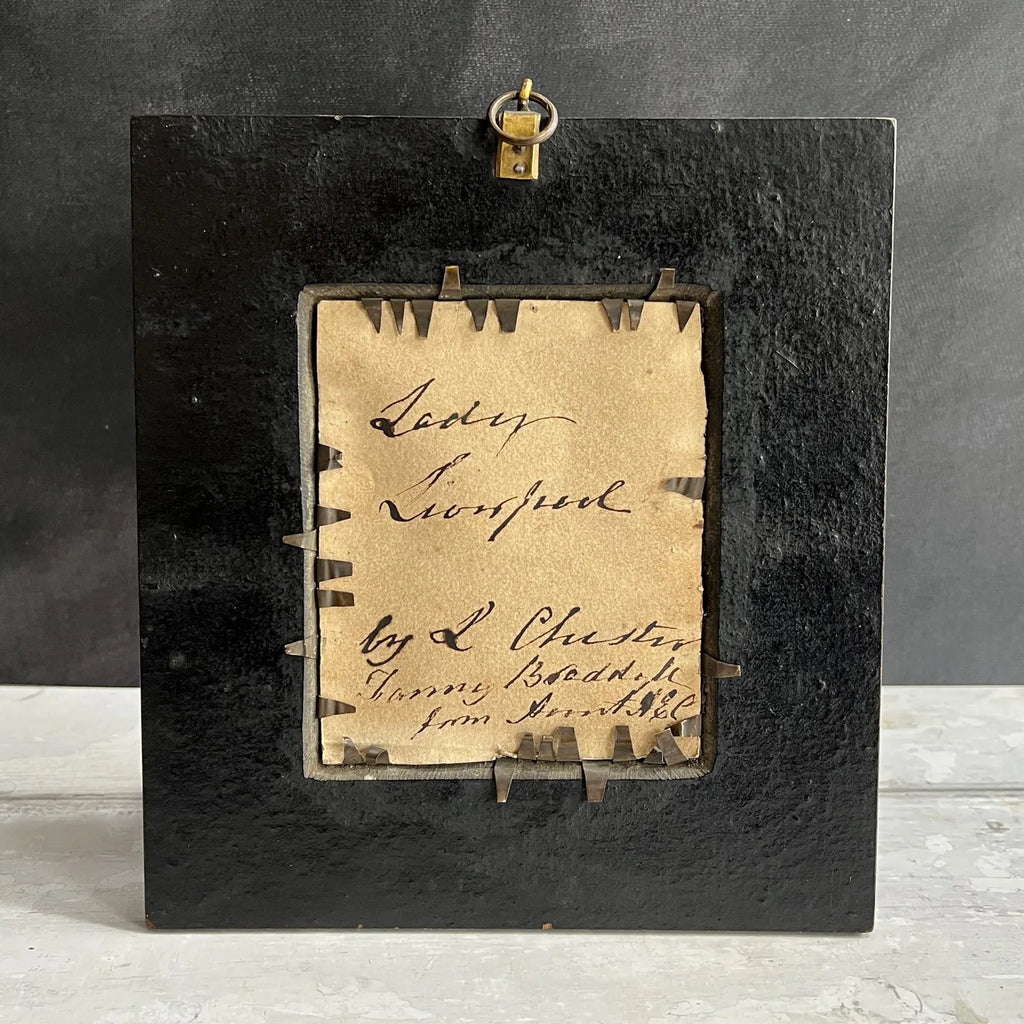 Lady
Liverpool
by L Chester
Fanny Braddyll
from Aunt